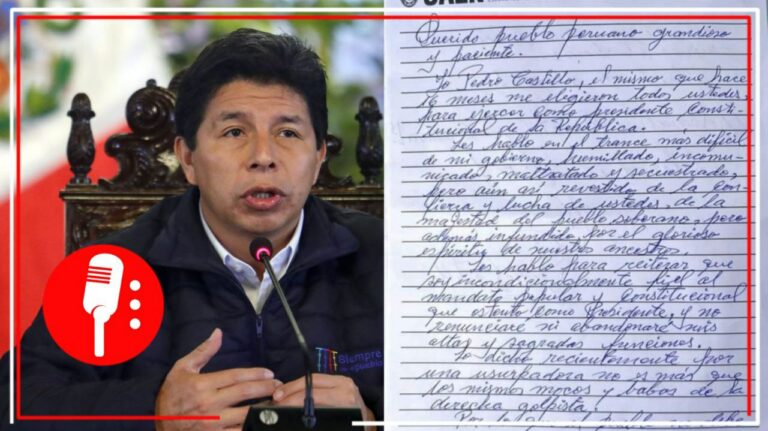 Siempre
Querido pueblo peruano grandioso
y paciente.
Yo Pedro Castillo, el mismo que hace
16 meses me eligieron todos ustedes,
para ejercer como presidente Consti-
tucional de la República.
Les hablo en el trance más difícil
de mi gobierno, humillado, incomu-
nicado, maltratado y secuestrado,
pero aún así revestido de la con-
fianza y lucha de ustedes, de la
majestad del pueblo soberano, pero
además infundido por el glorioso
espíritu de nuestros ancestros.
Les hablo para reiterar que
soy incondicionalmente fiel al
mandato popular y Constitucional
que ostento como Presidente, y no
renunciaré ni abandonaré mis
altas y sagradas funciones.
Lo dicho recientemente por
una usurpadora no es más que
los mismos mocos y babas de la
derecha golpista.